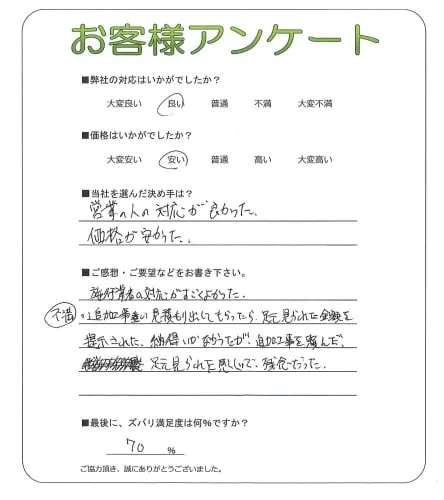 お客様アンケート
■弊社の対応はいかがでしたか?
大変良い 良い 普通 不満 大変不満
■価格はいかがでしたか?
大変安い 安い 普通 高い 大変高い
■当社を選んだ決め手は?
営業の人の対応が良かった.
価格が安かった.
■ご感想・ご要望などをお書き下さい。
施行業者の対応がすごくよかった.
不満 ・追加工事 見積り出してもらったら、足元見られた金額を
提示された、納得いかなかったが、追加工事を頼んだ、
足元見られた感じで、残念だった.
■最後に、ズバリ満足度は何%ですか?
70 %
ご協力頂き、誠にありがとうございました。